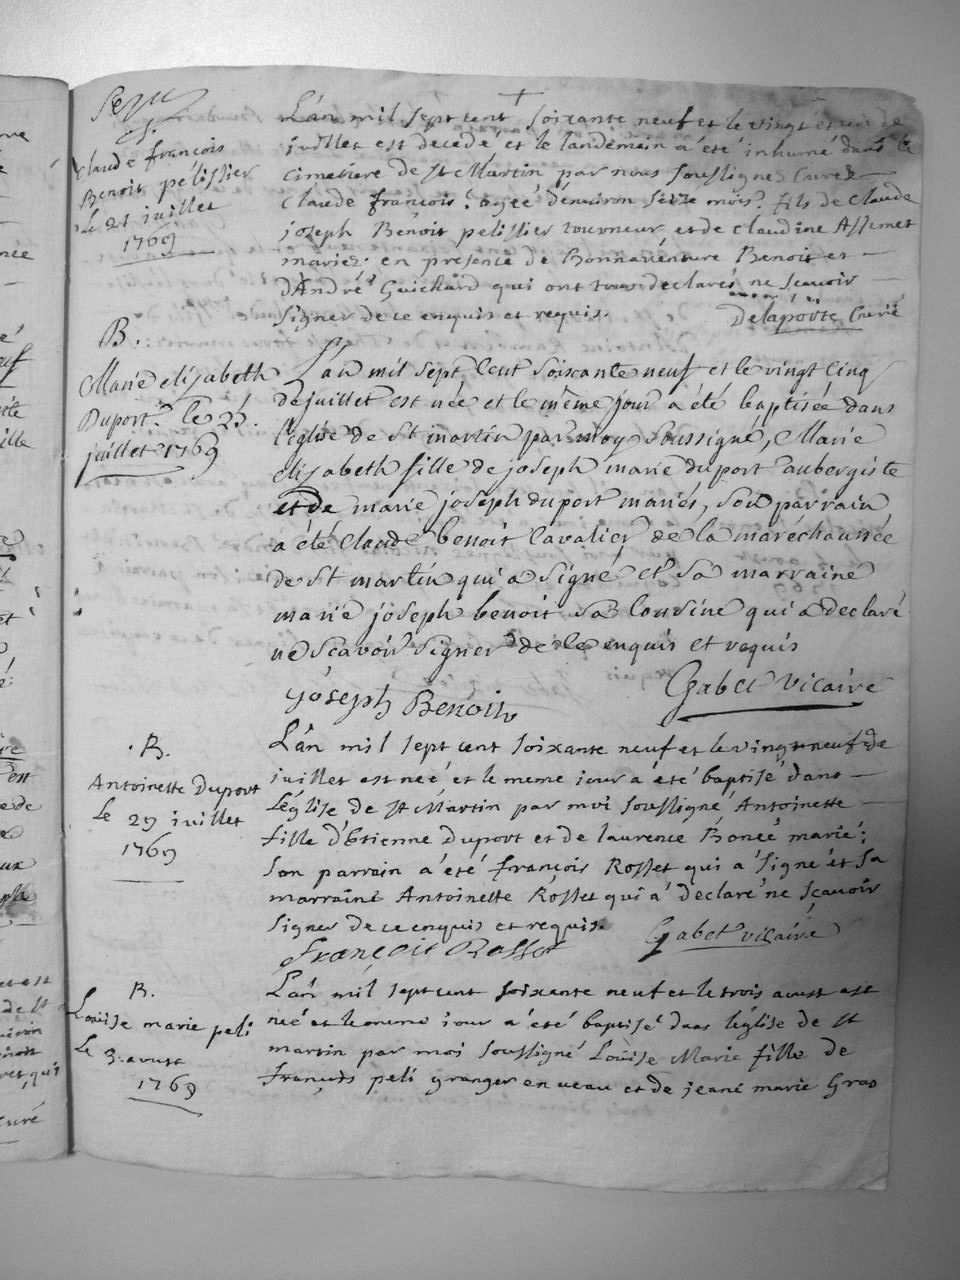 Sepu
S.
claude françois
Benoit pelissier
le 21 juillet
1769
L'an mil sept cent soixante neuf et le vingt et un de
juillet est decedé et le landemain a été inhumé dans le
cimetiere de st Martin par nous soussigné Curé
Claude françois agéé d'environ seize mois fils de claude
joseph Benoit pelissier tourneur et de claudine Assemet
mariez en presence de Bonnaventure Benoit et
d'André Guichard qui ont tous declarés ne scavoir
signer de ce enquis et requis. Delaporte Curé
B.
Marie elizabeth
Duport le 25
juillet 1769
L'an mil sept cent soixante neuf et le vingt cinq
de juillet est née et le même jour a été baptisée dans
l'eglise de St martin par moy soussigné, Marie
elizabeth fille de joseph marie duport aubergiste
et de marie joseph duport mariés, son parrain
a été claude benoit cavalier de la maréchaussée
de St martin qui a signé et sa marraine
marie joseph benoit sa cousine qui a declaré
ne scavoir signer de ce enquis et requis
joseph Benoit Gabet vicaire
B.
Antoinette duport
le 29 juillet
1769
L'an mil sept cent soixante neuf et le vingt neuf de
juillet est neé et le meme jour a été baptisé dans
l'église de st Martin par moi soussigné Antoinette
fille d'Etienne duport et de laurence Boncé marié:
son parrain a été françois Rosset qui a signé et sa
marraine Antoinette Rosset qui a declaré ne scavoir
signer de ce enquis et requis.
François Rosset Gabet vicaire
B.
Louise marie peli
le 3 aoust
1769
L'an mil sept cent soixante neuf et le trois aoust est
neé et le meme jour a été baptisé dans l'église de st
martin par moi soussigné Louise Marie fille de
françois peli granger en veau et de jeane marie Gras